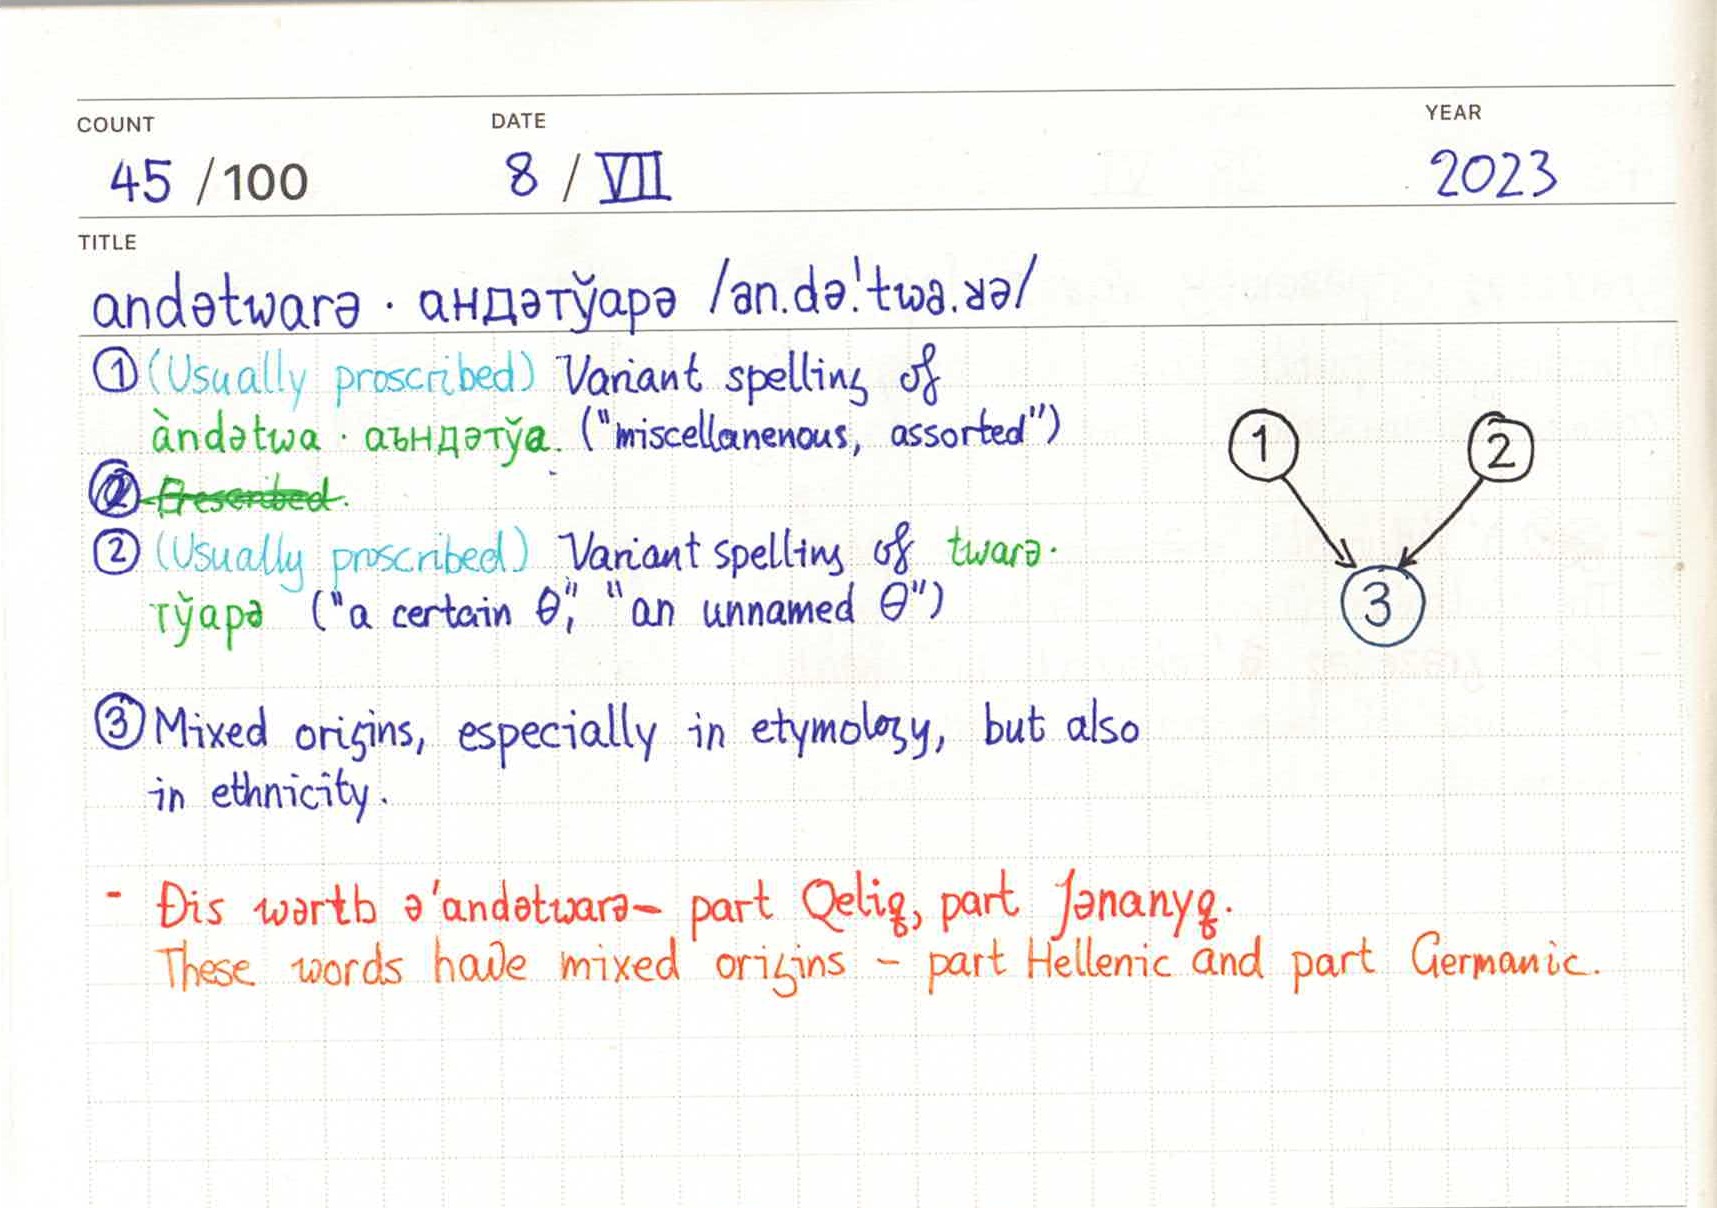 COUNT DATE YEAR
45 /100 8 / VII 2023
TITLE
andətwarə · андәтўарә /ən.də.ˈtwə.ʁə/
① (Usually proscribed) Variant spelling of
àndətwa · аъндәтўа. ("miscellanenous, assorted")
②
② (Usually proscribed) Variant spelling of twarə·
тўарә ("a certain θ", "an unnamed θ")
1 2
3
③ Mixed origins, especially in etymology, but also
in ethnicity.
- Ðis wərtb ə'andətwarə– part Qeliq, part Jənanyq.
These words have mixed origins – part Hellenic and part Germanic.